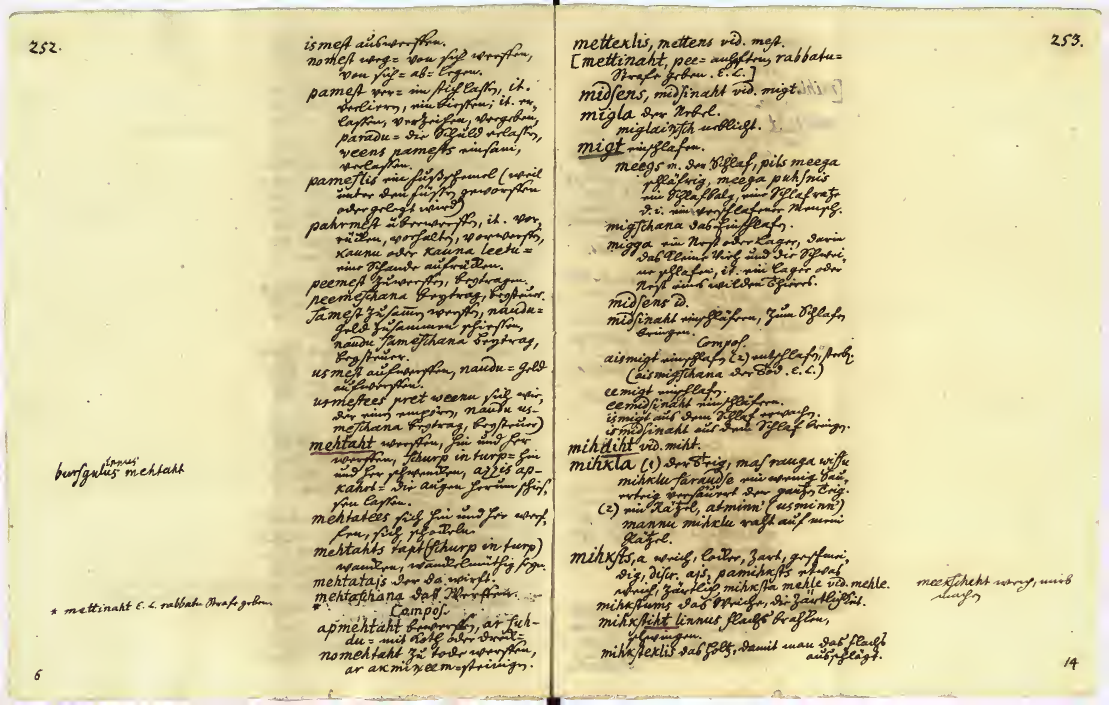 252.
ismest auswerffen.
nomest weg= von sich werffen,
von sich= ab= legen.
pamest ver= im stich lassen, it.
verliern, einbüessen; it. er,
lassen, verzeihen, vergeben,
paradu= die Schuld erlassen,
weens pamests einsam,
verlassen.
pamestlis ein fußschemel (weil
unter den füssen geworffen
oder gelegt wird)
pahrmest überwerffen, it. vor,
rüken, vorhalten, vorwerffen,
kaunu oder kauna leetu=
eine Schande aufrüken.
peemest zuwerffen, beytragen.
peemeschana beytrag, beysteuer.
samest zusamm werffen, naudu=
geld zusammen schiessen,
naudu sameschana beytrag,
beysteuer.
usmest aufwerffen, naudu= geld
aufwerffen.
usmestees pret weenu sich wie,
der einen empören, naudu us-
meschana beytrag, beysteuer)
mehtaht werffen, hin und her
werffen, schurp in turp= hin
und her schwenken, azzis ap-
kahrt= die augen herum schies,
sen lassen.
mehtatees sich hin und her werf,
fen, sich schaukeln.
mehtahts tapt (schurp in turp)
wanken, wankelmüthig seyn.
mehtatajs der da wirft.
mehtaschana das Werffen.
*
Compos.
apmehtaht bewerffen, ar suh-
du= mit Koth oder Drek=
nomehtaht zu tode werffen,
ar akmineem= steinigen.
burssgulus linnus mehtaht
* mettinaht E. L. rabbatu Strafe geben
6
253.
mettexlis, mettens vid. mest.
[mettinaht, pee= anheften, rabbatu=
Strafe geben. E. L.]
midsens, midsinaht vid. migt.
migla der Nebel.
miglainsch neblicht.
migt einschlafen.
meegs m. der Schlaf, pils meega
schläfrig, meega puhsnis
ein Schlafbalg, eine Schlafratze
d. i. ein verschlafener Mensch.
migschana das Einschlafen.
migga ein Nest oder Lager, darin
das kleine Vieh und die Schwei,
ne schlafen, it. ein Lager oder
Nest eines wilden Thiers.
midsens id.
midsinaht einschläfern, zum Schlafen
bringen.
Compos.
aismigt einschlafen (2) entschlafen, sterben.
(aismigschana der Tod. E. L.)
eemigt einschlafen.
eemidsinaht einschläfern.
ismigt aus dem Schlaf erwachen.
ismidsinaht aus dem Schlaf bringen.
mihdiht vid. miht.
mihkla (1) der Teig, mas rauga wissu
mihklu saraudse ein wenig Sau,
erteig versäuert den gantzen Teig.
(2) ein Räzel, atminn (usminn)
mannu mihklu raht auf mein
Räzel.
mihksts, a weich, loker, zart, geschmei,
dig, discr. ajs, pamihksts etwas
weich, zärtlich mihksta mehle vid. mehle.
mihkstums das Weiche, die Zärtligkeit.
mihkstiht linnus flachs brahken,
schwingen.
mihkstexlis das holtz, damit man das flachs
ausschlägt.
meekscheht weich, mürb
machen
14